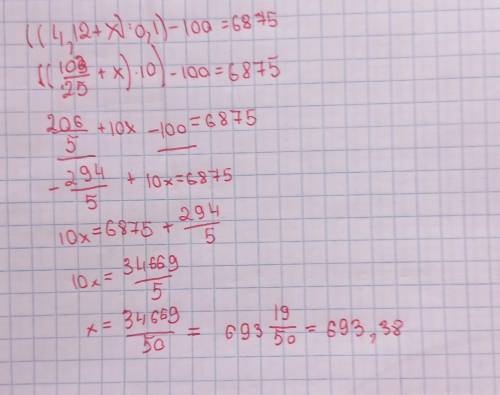 ((4,12+x):0,1)-100=6875
((103/25+x)·10)-100=6875
206/5+10x-100=6875
-294/5+10x=6875
10x=6875+294/5
10x=34669/5
x=34669/50=693 19/50=693,38